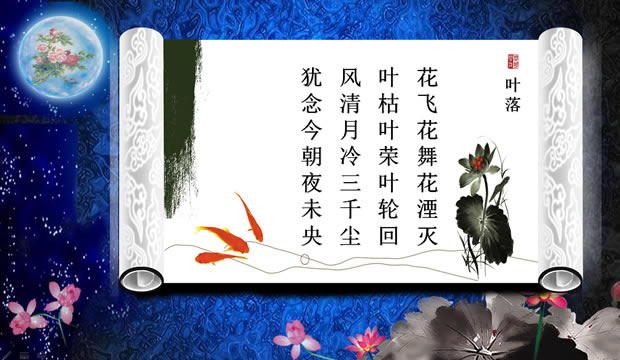 叶落
花飞花舞花湮灭
叶枯叶荣叶轮回
风清月冷三千尘
犹念今朝夜未央